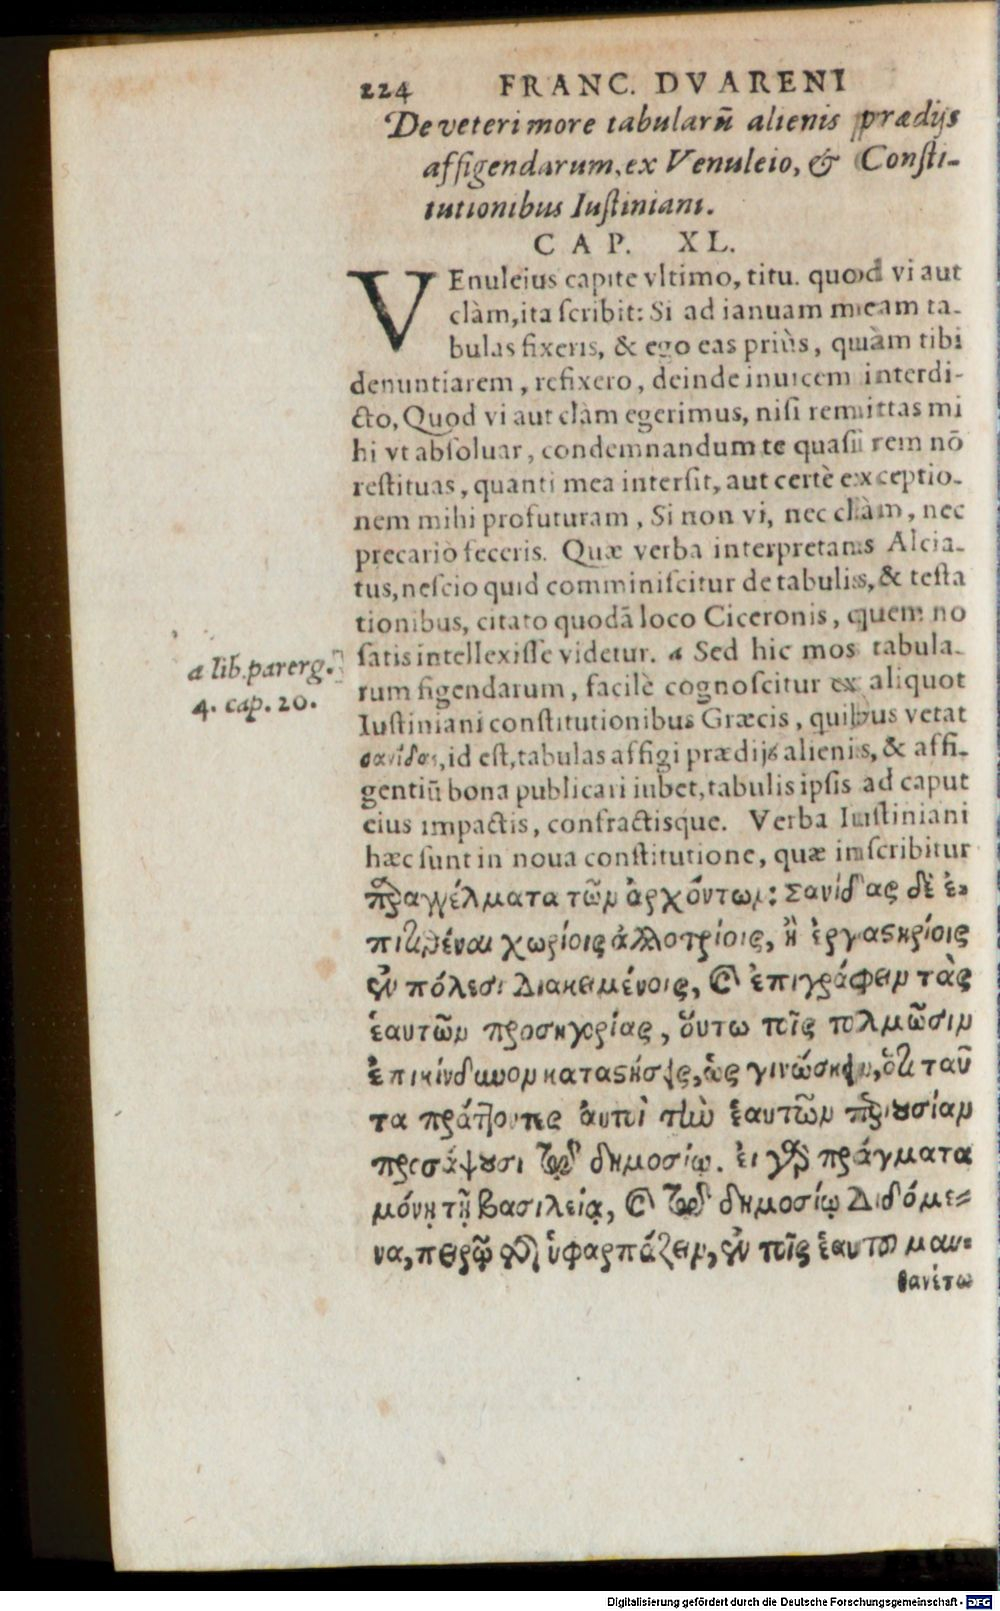 224 FRANC. DVARENI
De veteri more tabularũ alienis prædijs
affigendarum, ex Venuleio, & Consti-
tutionibus Iustiniani.
CAP. XL.
VEnuleius capite vltimo, titu. quod vi aut
clàm, ita scribit: Si ad ianuam meam ta-
bulas fixeris, & ego eas priùs, quàm tibi
denuntiarem, refixero, deinde inuicem interdi-
cto, Quod vi aut clàm egerimus, nisi remittas mi
hi vt absoluar, condemnandum te quasi rem nõ
restituas, quanti mea intersit, aut certè exceptio-
nem mihi profuturam, Si non vi, nec clàm, nec
precariò feceris. Quæ verba interpretans Alcia-
tus, nescio quid comminiscitur de tabulis, & testa
tionibus, citato quodã loco Ciceronis, quem no
satis intellexisse videtur. a Sed hic mos tabula-
rum figendarum, facilè cognoscitur ex aliquot
Iustiniani constitutionibus Græcis, quibus vetat
σανίδας, id est, tabulas affigi prædijs alienis, & affi-
gentiũ bona publicari iubet, tabulis ipsis ad caput
eius impactis, confractisque. Verba Iustiniani
hæc sunt in noua constitutione, quæ inscribitur
παραγγέλματα τῶν ἀρχόντων: Σανίδας δὲ ἐ-
πιτιθέναι χωρίοις ἀλλοτρίοις, ἢ ἐργαστηρίοις
ἐν πόλεσι διακειμένοις, καὶ ἐπιγράφειν τὰς
ἑαυτῶν προσηγορίας, ὅυτω τοῖς τολμῶσιν
ἐπικίνδυνον καταστήσεις, ὡς γινώσκειν, ὅτι ταῦ
τα πράττοντες ἀυτοὶ τὴν ἑαυτῶν περιουσίαν
προσάψουσι τῷ δημοσίῳ. ἐι γὰρ πράγματα
μόνῃ τῇ βασιλείᾳ, καὶ τῷ δημοσίῳ διδόμε-
να, πειρῷτό ὑφαρπάζειν, ἐν τοῖς ἑαυτοῦ μαν-
θανέτω
a lib. parerg.
4. cap. 20.
Digitalisierung gefördert durch die Deutsche Forschungsgemeinschaft - DFG